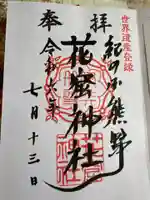 世界遺産登録
奉拝
熊野
花窟神社
令和六年
七月十三日